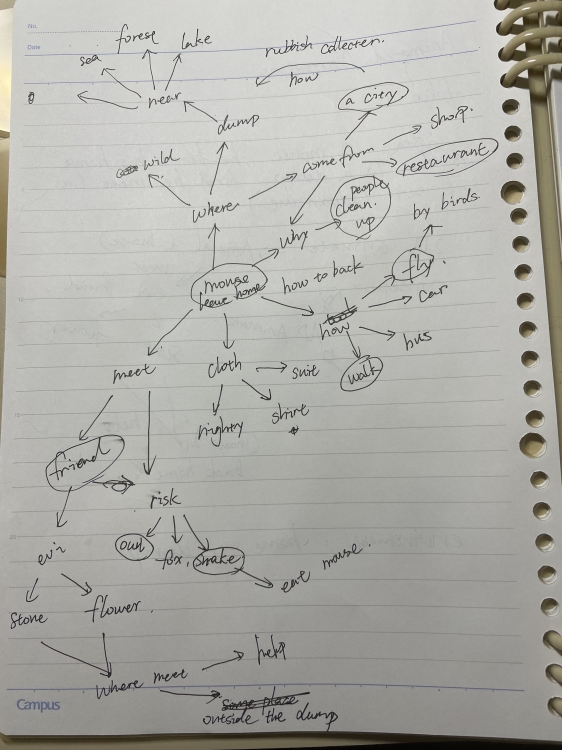 No.
Date
forest
lake
sea
rubbish collecter.
how
near
a citry
dump
shorp.
come from
restaurant
wild
where
people
clean.
up
why
by birds.
mouse
leave home
how to back
fly.
car
how
bus
meet
cloth
suit
walk
nighty
shirt
friend
risk
owl
fox.
snake
eat mouse.
evi
stone
flower.
where meet
help
some place
outside the dump
Campus